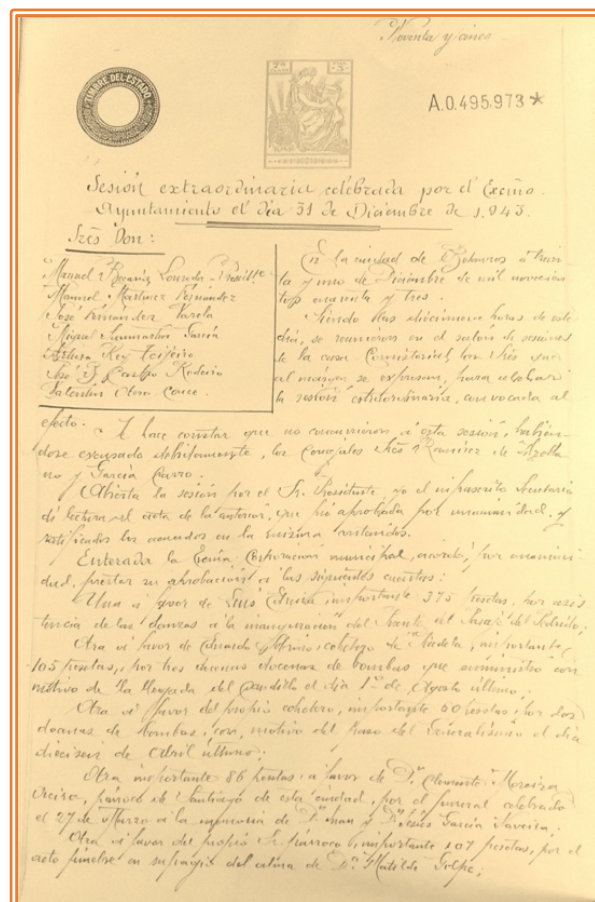 Noventa y cinco
TIMBRE DEL ESTADO
A.0.495.973 *
Sesión extraordinaria celebrada por el Excmo.
Ayuntamiento el día 31 de Diciembre de 1.943.
Srés Don:
Manuel Lourada Preside
Manuel Martinez Fernández
José Fernández Varela
Miguel Sanmartín García
Arturo Rey Teijeiro
José Castro Rodeiro
Valentín Otero
En la ciudad de Betanzos a trein-
ta y uno de Diciembre de mil novecien
tos cuarenta y tres.
Siendo las diecinueve horas de este
día, se reunieron en el salón de sesiones
de la casa Consistorial los Srés que
al margen se expresan, para celebrar
la sesión extraordinaria, convocada al
efecto. - Se hace constar que no concurrieron a esta sesión, habién-
dose excusado debidamente, los Concejales Srés Ramírez de Arella
no y García
Abierta la sesión por el Sr. Presidente, yo el infrascrito Secretario
di lectura al acta de la anterior, que fué aprobada por unanimidad, y
ratificados los acuerdos en la misma contenidos.
Enterada la Excma. Corporación municipal, acordó, por unanimi
dad, prestar su aprobación a las siguientes cuentas:
Una a favor de Luis importante 375 pesetas, por asis
tencia de las danzas a la inauguración del Puente del Pasaje del Pedrido;
Otra a favor de Eduardo cohetero de importante
105 pesetas, por tres docenas de bombas que suministró con
motivo de la llegada del Caudillo el día 1º de Agosto último;
Otra a favor del propio cohetero, importante 60 pesetas, por dos
docenas de bombas, con motivo del paso del Generalísimo el día
dieciseis de Abril último;
Otra importante 86 pesetas a favor de D. Clemente Moreira
párroco de Santiago de esta ciudad, por el funeral celebrado
el 27 de Marzo a la memoria de D. Juan y D. Jesús García Naveira;
Otra a favor del propio Sr. párroco, importante 107 pesetas, por el
acto fúnebre en sufragio del alma de Dª Matilde Golpe;